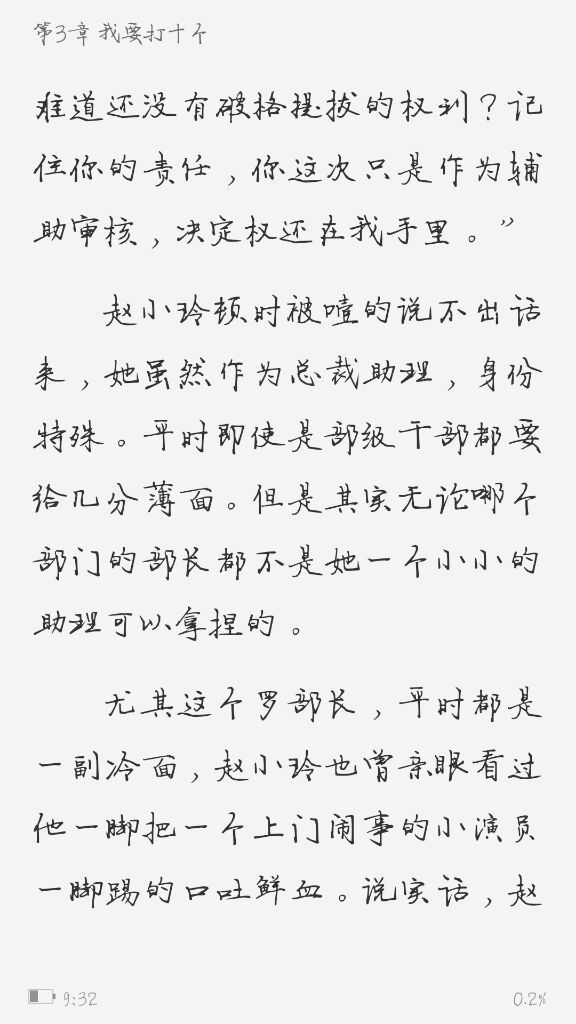 第3章 我要打十个
难道还没有破格提拔的权利？记
住你的责任，你这次只是作为辅
助审核，决定权还在我手里。”
赵小玲顿时被噎的说不出话
来，她虽然作为总裁助理，身份
特殊。平时即使是部级干部都要
给几分薄面。但是其实无论哪个
部门的部长都不是她一个小小的
助理可以拿捏的。
尤其这个罗部长，平时都是
一副冷面，赵小玲也曾亲眼看过
他一脚把一个上门闹事的小演员
一脚踢的口吐鲜血。说实话，赵
9:32
0.2%